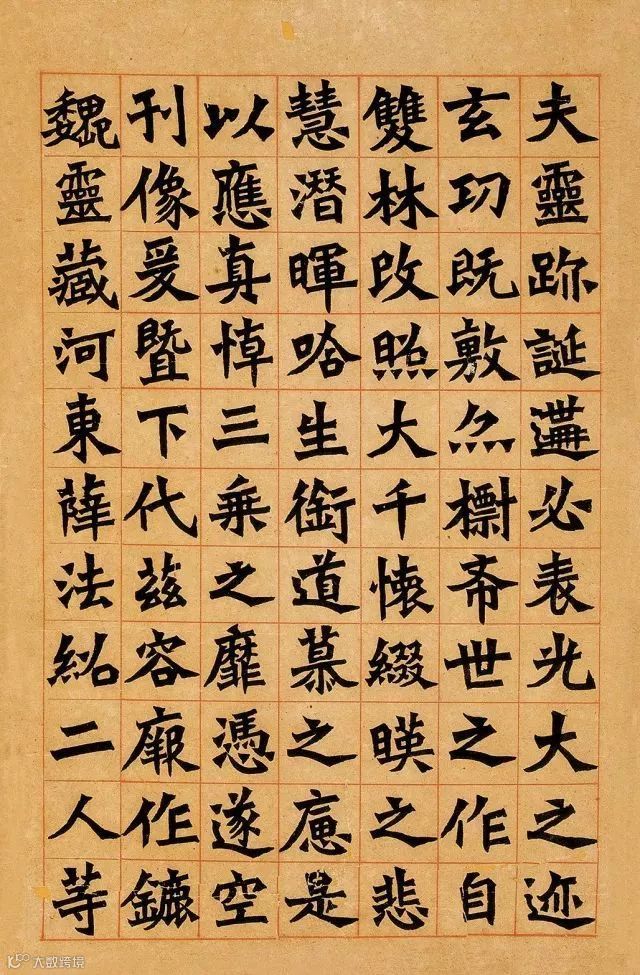 夫靈跡誕遘必表光大之迹
玄功既敷亦標希世之作自
雙林改照大千懷綴暎之悲
慧潛暉啥生銜道慕之應是
以應真悼三乘之靡憑遂空
刊像爰暨下代茲容廄作鑣
魏靈藏河東薛法紹二人等
大数跨境